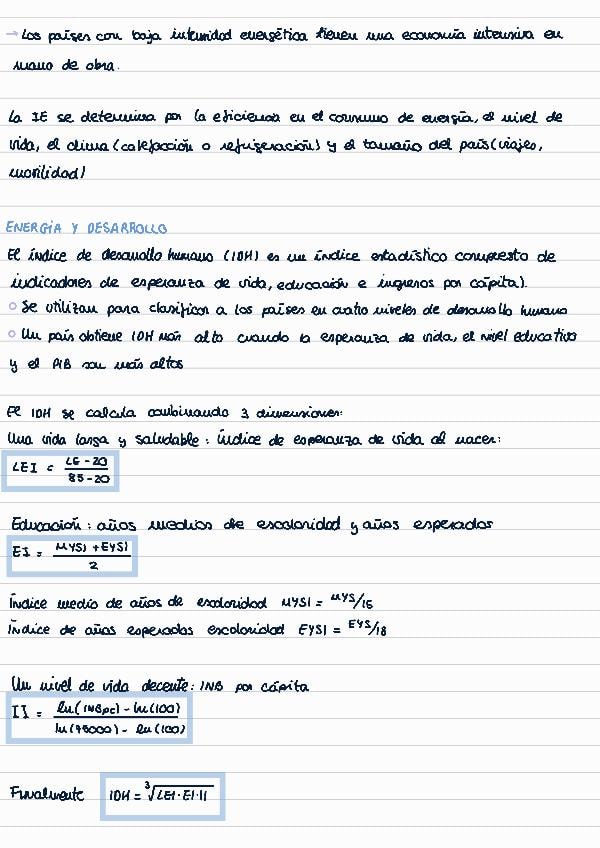 → Los países con baja intensidad energética tienen una economía intensiva en
mano de obra.
La IE se determina por la eficiencia en el consumo de energía, el nivel de
vida, el clima (calefacción o refrigeración) y el tamaño del país (viajes,
movilidad)
ENERGÍA Y DESARROLLO
El índice de desarrollo humano (IDH) es un índice estadístico compuesto de
indicadores de esperanza de vida, educación e ingresos por cápita).
○ Se utilizan para clasificar a los países en cuatro niveles de desarrollo humano
○ Un país obtiene IDH más alto cuando la esperanza de vida, el nivel educativo
y el PIB son más altos
El IDH se calcula combinando 3 dimensiones:
Una vida larga y saludable: Índice de esperanza de vida al nacer:
LEI = LE - 20 / 85 - 20
Educación: años medios de escolaridad y años esperados
EI = MYSI + EYSI / 2
Índice medio de años de escolaridad MYSI = MYS/15
Índice de años esperados escolaridad EYSI = EYS/18
Un nivel de vida decente: INB por cápita
II = ln(INBpc) - ln(100) / ln(75000) - ln(100)
Finalmente IDH = ³√LEI·EI·II